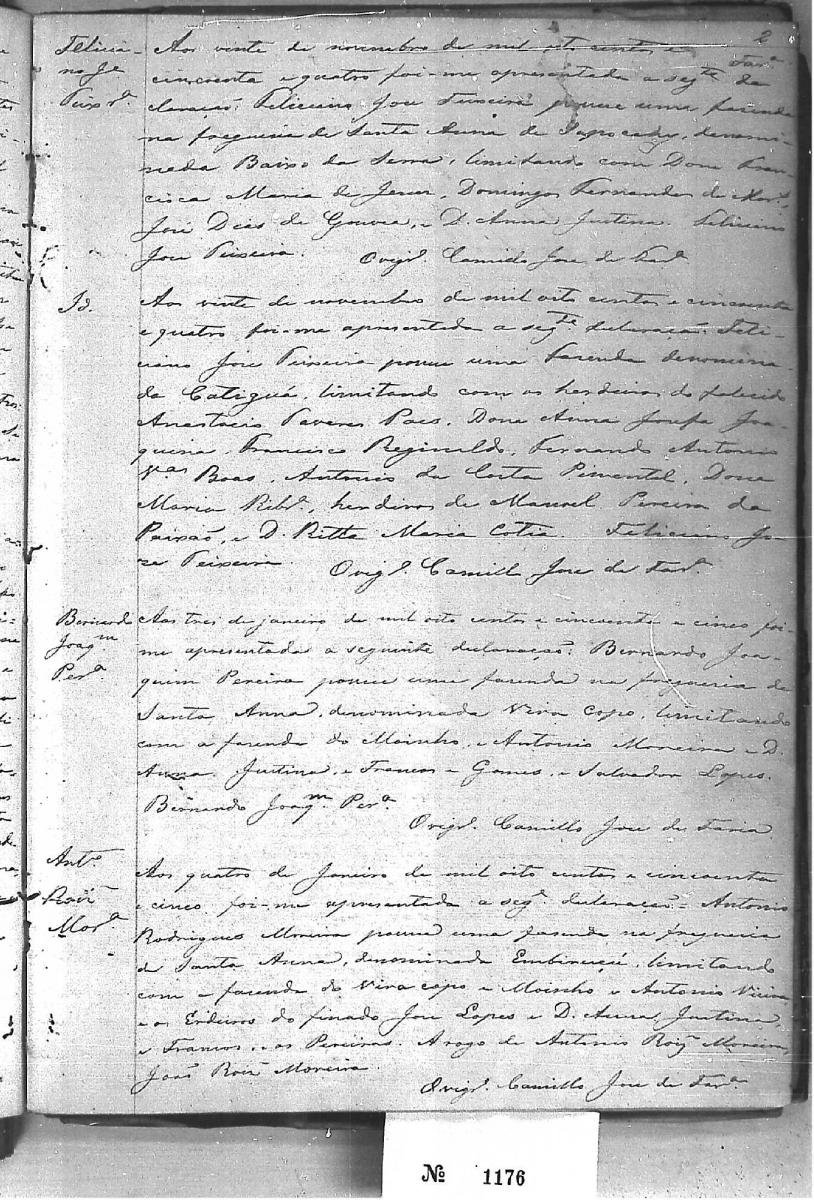 2
Far.ª
Felicia-
no J.e
Teix.rª
Aos vinte de novembro de mil oito centos e
cincoenta e quatro foi-me apresentada a seg.te de
claração. Feliciano Jose Teixeira possue uma fazenda
na freguesia de Santa Anna de Sapocahy, denomi-
nada Baixo da Serra, limitando com Dona Fran-
cisca Maria de Jesus, Domingos Fernandes de
José Dias de Gouvea, e D. Anna Justina. Feliciano
Jose Teixeira. O vigr.º Camillo Jose de Far.ª
Id.
Aos vinte de novembro de mil oito centos e cincoenta
e quatro foi-me apresentada a seg.te declaração. Feli-
ciano Jose Teixeira possue uma Fazenda denomina-
da Catiguá, limitando com os herdeiros do falecido
Anastacio Tavares Paes, Dona Anna Josefa Joa-
quina, Francisco Reginaldo, Fernando Antonio
V.as Boas, Antonio da Costa Pimentel, Dona
Maria Rib.rº, herdeiros de Manoel Pereira da
Paixaõ, e D. Ritta Maria Cotia. Feliciano Jo-
ze Teixeira. O vigr.º Camillo Jose de Far.ª
Bernardo
Joaq.m
Per.ª
Aos tres de janeiro de mil oito centos e cincoenta e cinco foi-
me apresentada a seguinte declaração. Bernardo Joa-
quim Pereira possue uma fazenda na freguesia de
Santa Anna, denominada Vira Copo, limitando
com a fazenda do Moinho, e Antonio Moreira e D.
Anna Justina, e Francos e Ganes, e Salvador Lopes.
Bernardo Joaq.m Per.ª
O vigr.º Camillo Jose de Faria
Ant.º
Roiz
Mor.ª
Aos quatro de Janeiro de mil oito centos e cincoenta
e cinco foi-me apresentada a seg.e declaração. Antonio
Rodrigues Moreira possue uma fazenda na freguesia
de Santa Anna, denominada Embirussú, limitando
com a fazenda do Vira copo e Moinho e Antonio Vieira
e os Erdeiros do finado Jose Lopes e D. Anna Justina,
e Francos, e os Pereiras. A rogo de Antonio Roiz Moreira,
Joaõ Roiz Moreira.
O vigr.º Camillo Jose de Far.ª
Nº 1176